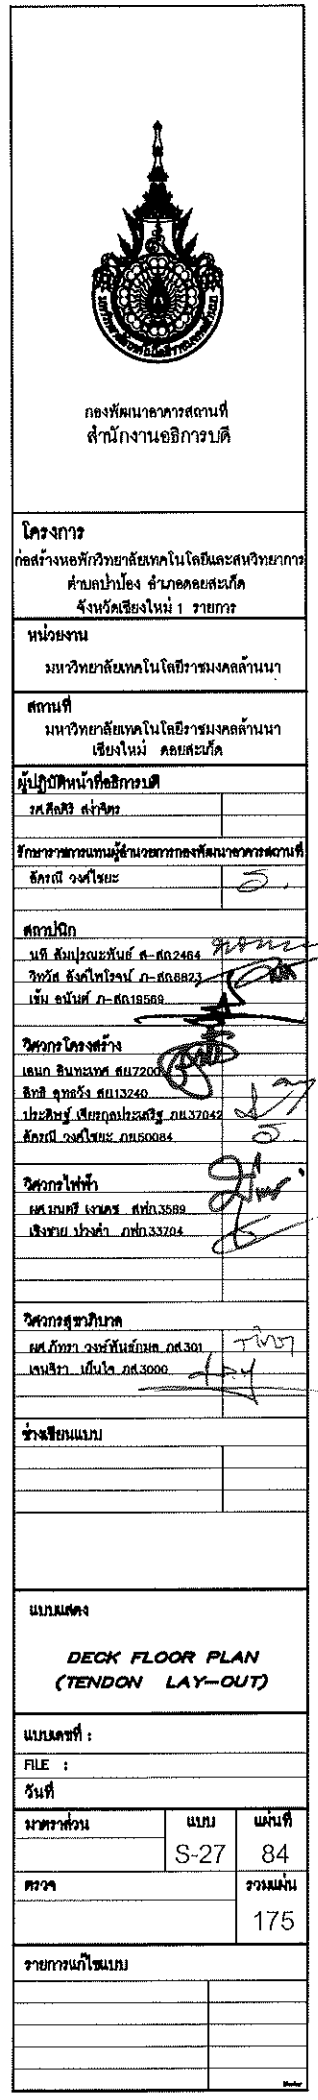 กองพัฒนาอาคารสถานที่
สำนักงานอธิการบดี
โครงการ
ก่อสร้างหอพักวิทยาลัยเทคโนโลยีและสหวิทยาการ
ตำบลป่าป้อง อำเภอดอยสะเก็ด
จังหวัดเชียงใหม่ 1 รายการ
หน่วยงาน
มหาวิทยาลัยเทคโนโลยีราชมงคลล้านนา
สถานที่
มหาวิทยาลัยเทคโนโลยีราชมงคลล้านนา
เชียงใหม่ ดอยสะเก็ด
ผู้ปฏิบัติหน้าที่อธิการบดี
รศ.ศีลศิริ สง่าจิตร
รักษาราชการแทนผู้อำนวยการกองพัฒนาอาคารสถานที่
อัครณี วงศ์ไชยะ
สถาปนิก
นที สัมปุรณะพันธ์ ส-สถ2464
วิทวัส อังค์ไพโรจน์ ภ-สถ8823
เข้ม อนันศ์ ภ-สถ19569
วิศวกรโครงสร้าง
เสนก สย7200
สย13240
ประดิษฐ์ เจียรกุลประเสริฐ ภย37042
อัครณี วงศ์ไชยะ ภย50084
วิศวกรไฟฟ้า
ผศ.มนตรี เงาเดช สฟก3589
เชิงชาย ปวงคำ ภฟก33704
วิศวกรสุขาภิบาล
ผศ.ภัทรา วงษ์พันธ์กมล ภส301
เจนจิรา เย็นใจ ภส3000
ช่างเขียนแบบ
แบบแสดง
DECK FLOOR PLAN
(TENDON LAY-OUT)
แบบเลขที่ :
FILE :
วันที่
มาตราส่วน แบบ แผ่นที่
S-27 84
ตรวจ รวมแผ่น
175
รายการแก้ไขแบบ